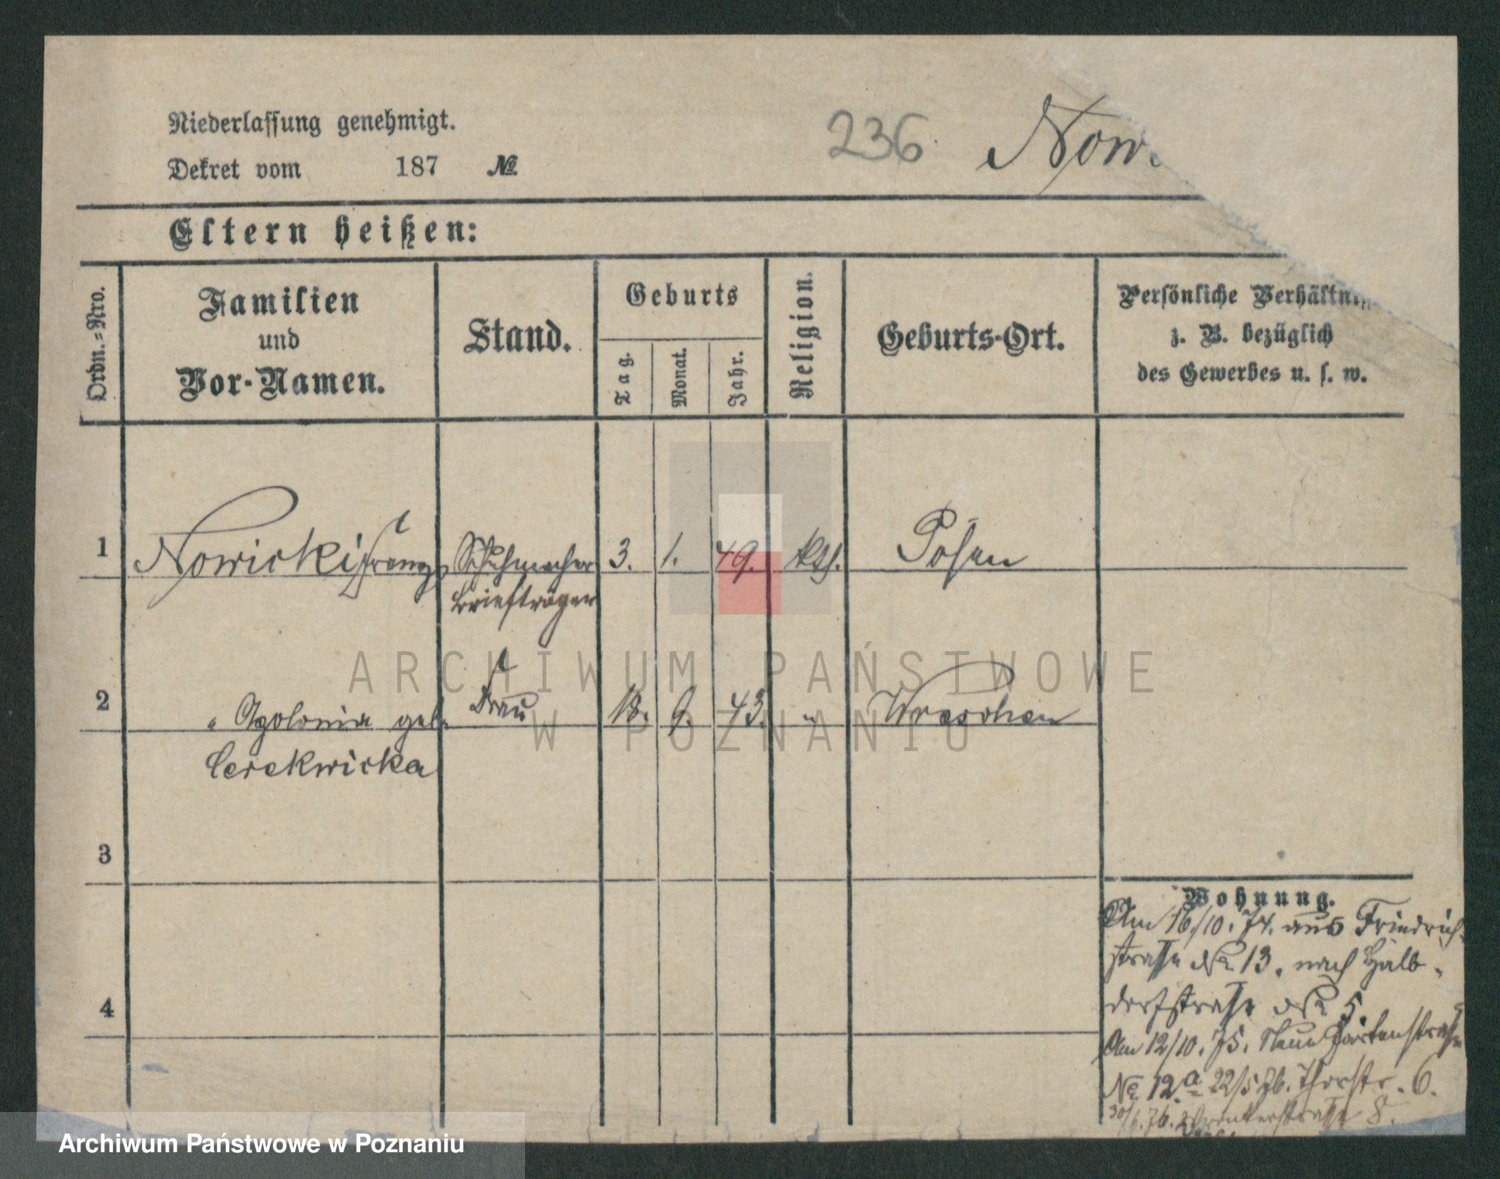 Niederlassung genehmigt.
Dekret vom 187 №
236 Now
Eltern heißen:
Ordn.-Nro.
Familien
und
Vor-Namen.
Stand.
Geburts
Tag.
Monat.
Jahr.
Religion.
Geburts-Ort.
Persönliche Verhältn
z. B. bezüglich
des Gewerbes u. s. w.
1 Nowicki Franz Schuhmacher 3. 1. 49. kth. Posen
Briefträger
2 " Apolonia geb. Frau 9. 43. " Wreschen
Cerekwicka
3
4
Wohnung.
Am 16/10. 74. aus Friedrich-
straße No 13. nach Halb-
dorfstraße No 5.
Am 12/10. 75. Neue Gartenstraße
No 12.a 22/5 76. Thorstr. 6.
30/ 76. 8.
ARCHIWUM PAŃSTWOWE
W POZNANIU
Archiwum Państwowe w Poznaniu